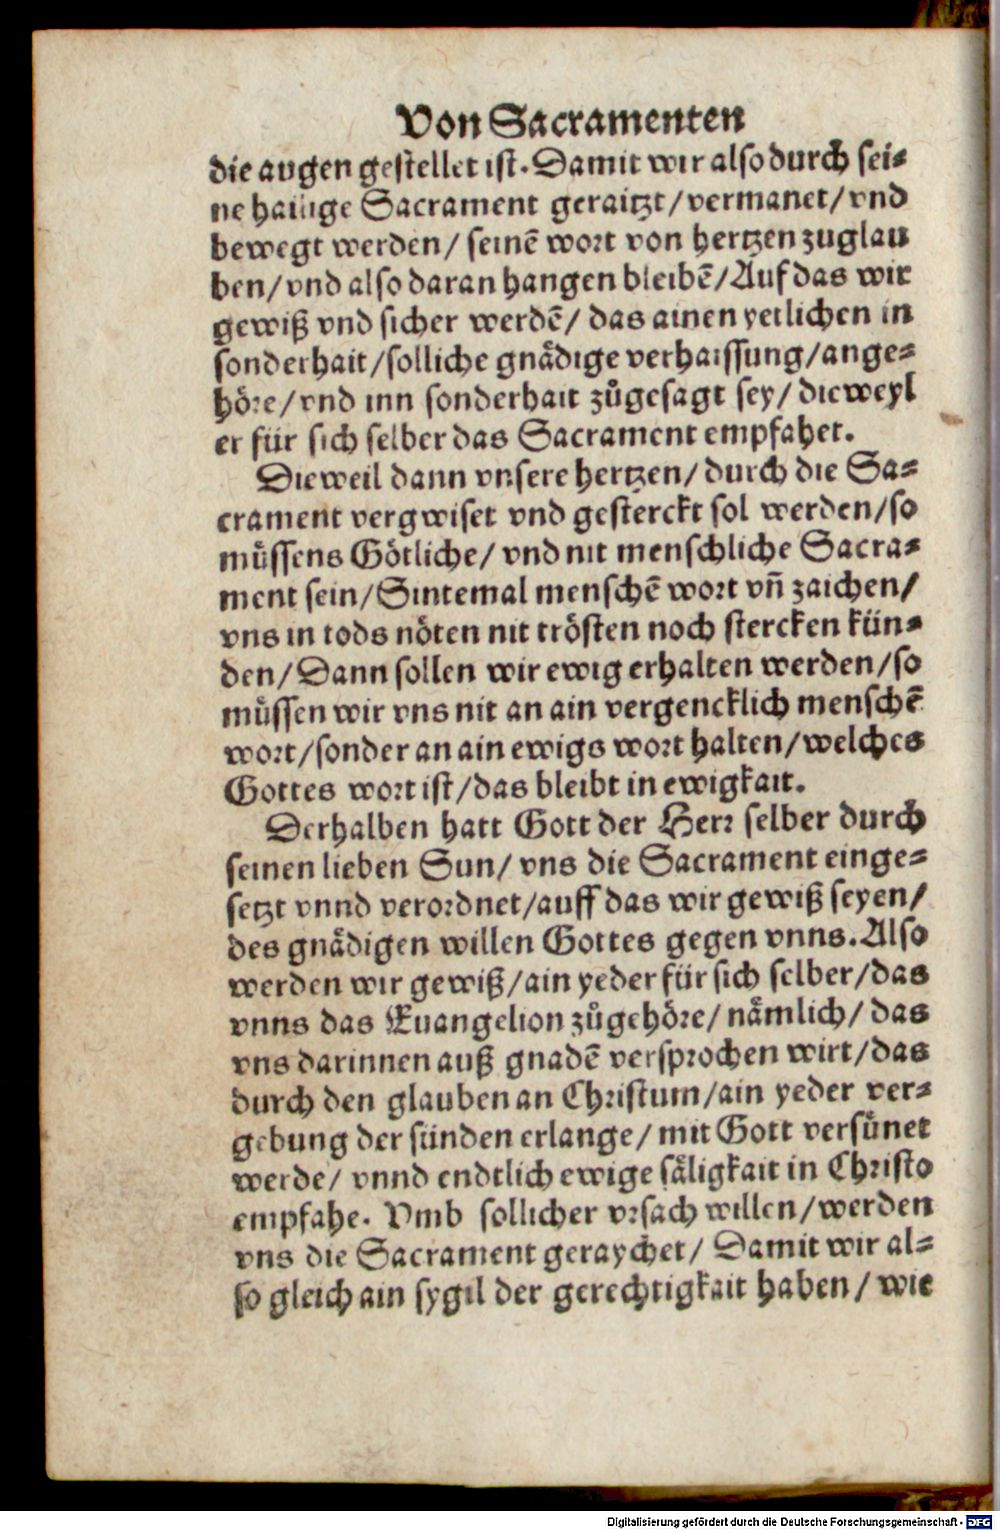 Von Sacramenten
die augen gestellet ist. Damit wir also durch sei-
ne hailige Sacrament geraitzt/ vermanet/ vnd
bewegt werden/ seinẽ wort von hertzen zuglau
ben/ vnd also daran hangen bleibẽ/ Auf das wir
gewiß vnd sicher werdẽ/ das ainen yetlichen in
sonderhait/ solliche gnaͤdige verhaissung/ ange-
hoͤre/ vnd inn sonderhait zuͦgesagt sey/ dieweyl
er für sich selber das Sacrament empfahet.
Dieweil dann vnsere hertzen/ durch die Sa-
crament vergwiset vnd gesterckt sol werden/ so
muͤssens Goͤtliche/ vnd nit menschliche Sacra-
ment sein/ Sintemal menschẽ wort vñ zaichen/
vns in tods noͤten nit troͤsten noch stercken kün-
den/ Dann sollen wir ewig erhalten werden/ so
muͤssen wir vns nit an ain vergencklich menschẽ
wort/ sonder an ain ewigs wort halten/ welches
Gottes wort ist/ das bleibt in ewigkait.
Derhalben hatt Gott der Herr selber durch
seinen lieben Sun/ vns die Sacrament einge-
setzt vnnd verordnet/ auff das wir gewiß seyen/
des gnaͤdigen willen Gottes gegen vnns. Also
werden wir gewiß/ ain yeder für sich selber/ das
vnns das Euangelion zuͦgehoͤre/ naͤmlich/ das
vns darinnen auß gnadẽ versprochen wirt/ das
durch den glauben an Christum/ ain yeder ver-
gebung der sünden erlange/ mit Gott versuͤnet
werde/ vnnd endtlich ewige saͤligkait in Christo
empfahe. Vmb sollicher vrsach willen/ werden
vns die Sacrament geraychet/ Damit wir al-
so gleich ain sygil der gerechtigkait haben/ wie
Digitalisierung gefördert durch die Deutsche Forschungsgemeinschaft - DFG